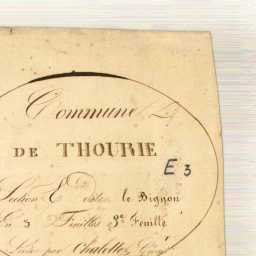 Commune
DE THOURIE
E 3
Section E dite le Bignon
En 3 Feuilles 3e Feuille
Levée par Chalette